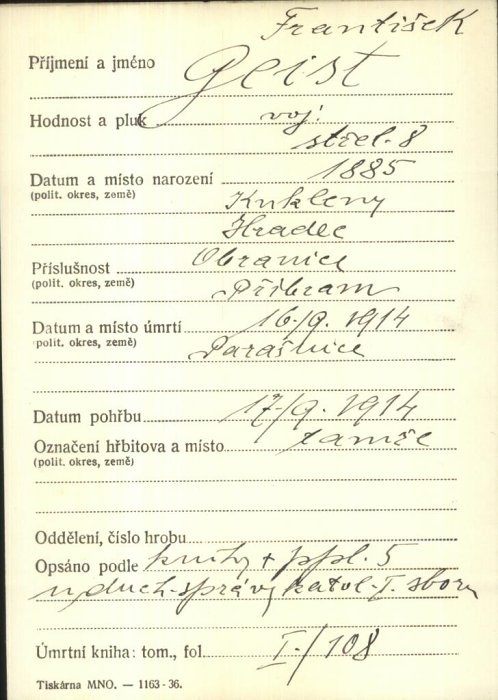 František
Příjmení a jméno Geist
Hodnost a pluk voj.
střel. 8
Datum a místo narození 1885
(polit. okres, země) Kukleny
Hradec
Příslušnost Obranice
(polit. okres, země) Příbram
Datum a místo úmrtí 16/9. 1914
(polit. okres, země) Parašnice
Datum pohřbu 17/9. 1914
Označení hřbitova a místo tamže
(polit. okres, země)
Oddělení, číslo hrobu
Opsáno podle knihy + ppl. 5
n duch. správy katol. I. sboru
Úmrtní kniha: tom., fol. I./108
Tiskárna MNO. — 1163-36.